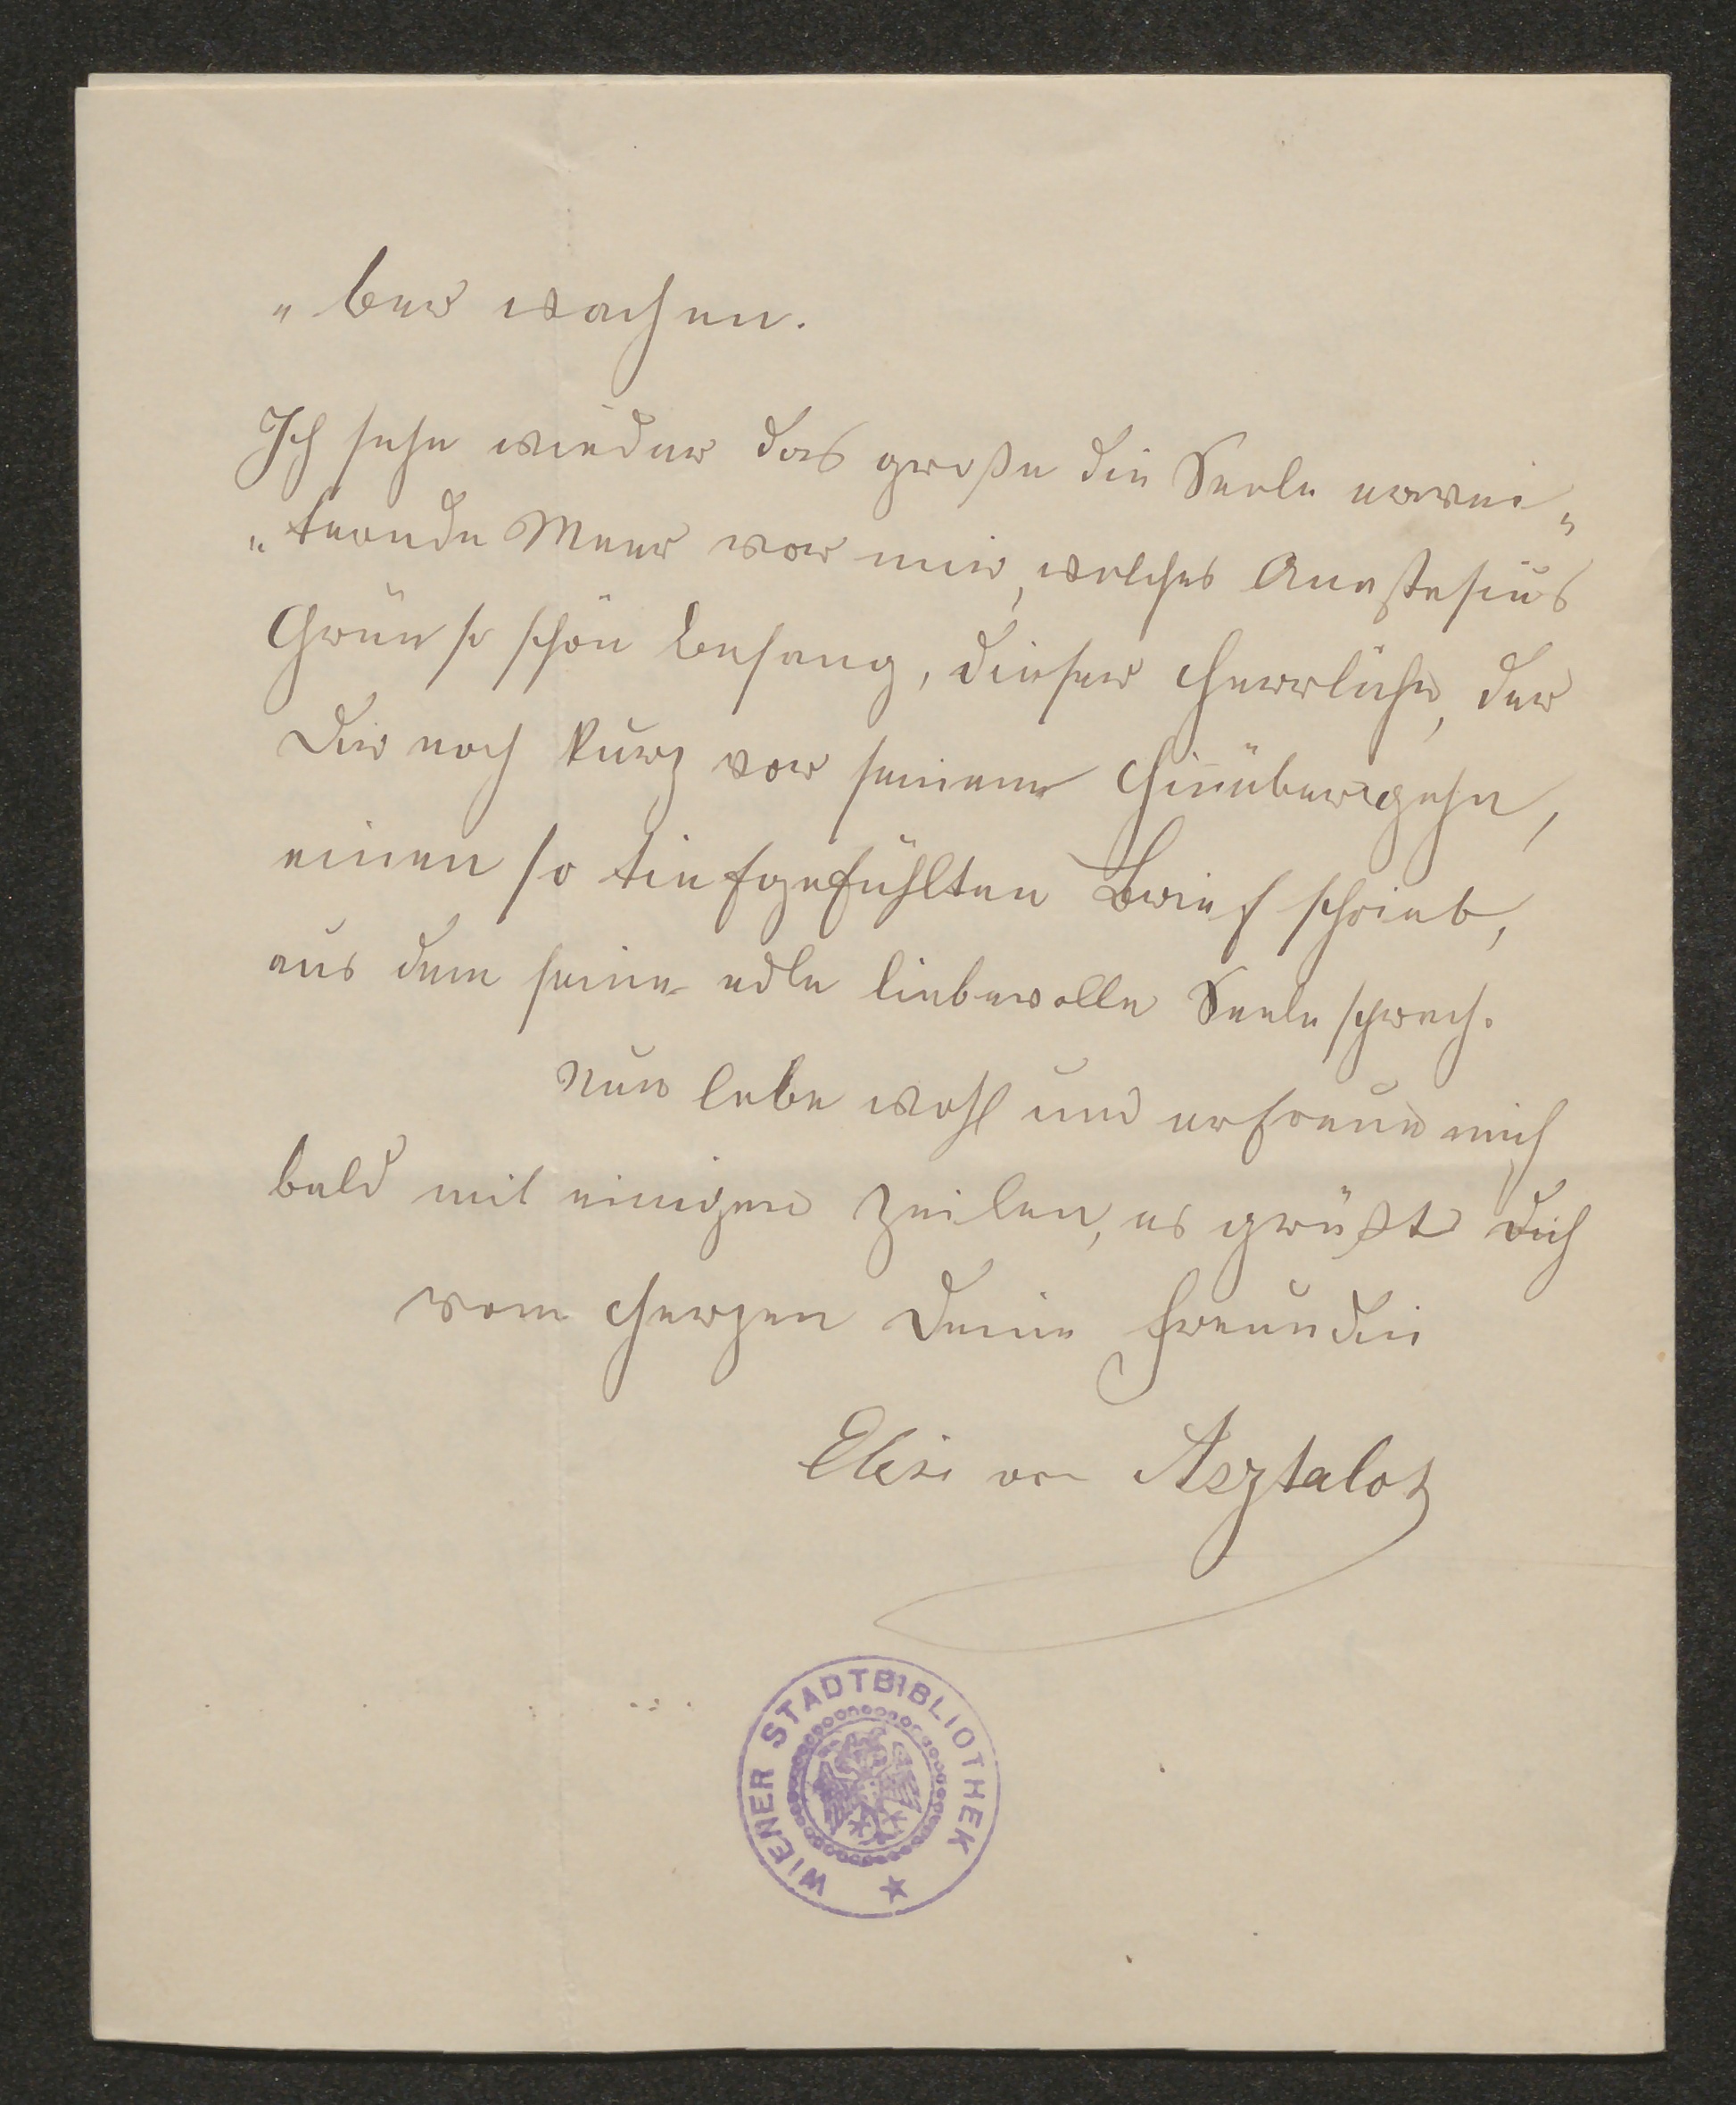 „ber wachen.
Ich sehe wieder das große die Seele erwei„
„ternde Meer vor mir, welches Anastasius
Grün so schön besang, dieser Herrliche, der
Dir noch kurz vor seinem Hinübergehn,
einen so tiefgefühlten Brief schrieb,
aus dem seine edle liebevolle Seele sprach.
Nun lebe wohl und erfreue mich
bald mit einigen Zeilen, es grüßt Dich
vom Herzen Deine Freundin
Elise von Asztalos
WIENER STADTBIBLIOTHEK